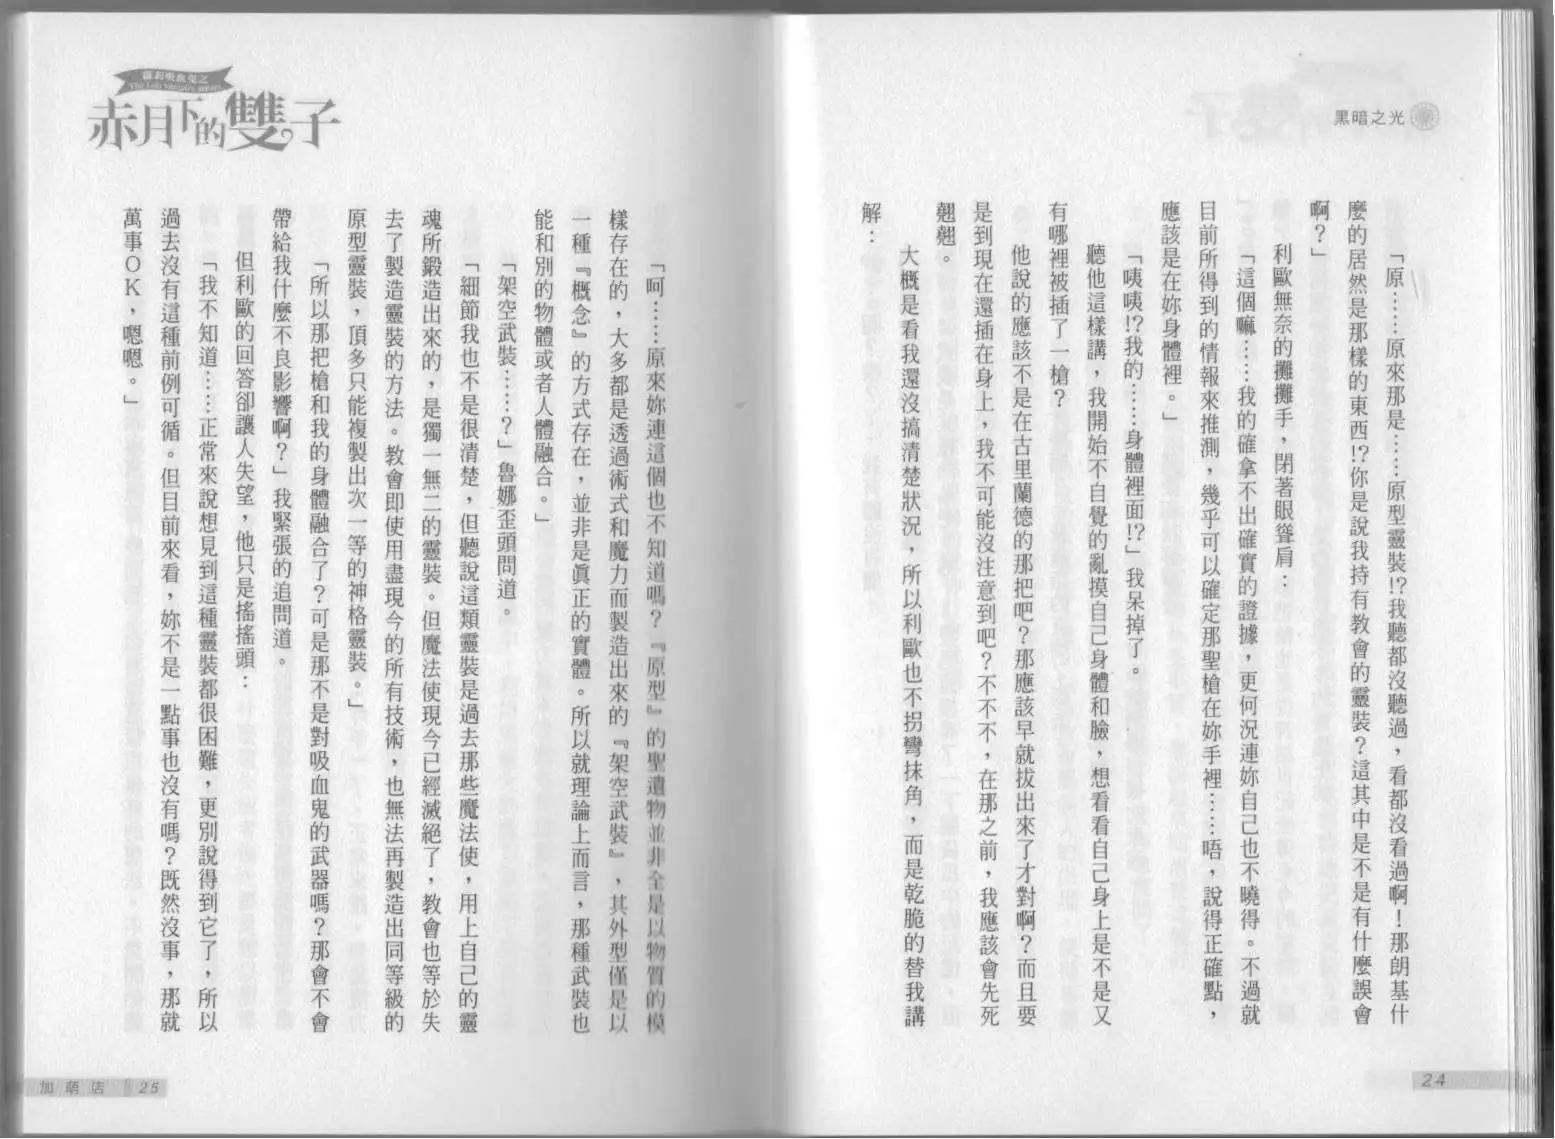 黑暗之光
「原……原來那是……原型靈裝!?我聽都沒聽過，看都沒看過啊！那朗基什
麼的居然是那樣的東西!?你是說我持有教會的靈裝？這其中是不是有什麼誤會
啊？」
利歐無奈的攤攤手，閉著眼聳肩：
「這個嘛……我的確拿不出確實的證據，更何況連妳自己也不曉得。不過就
目前所得到的情報來推測，幾乎可以確定那聖槍在妳手裡……唔，說得正確點，
應該是在妳身體裡。」
「咦咦!?我的……身體裡面!?」我呆掉了。
聽他這樣講，我開始不自覺的亂摸自己身體和臉，想看看自己身上是不是又
有哪裡被插了一槍？
他說的應該不是在古里蘭德的那把吧？那應該早就拔出來了才對啊？而且要
是到現在還插在身上，我不可能沒注意到吧？不不不，在那之前，我應該會先死
翹翹。
大概是看我還沒搞清楚狀況，所以利歐也不拐彎抹角，而是乾脆的替我講
解：
24
蘿莉吸血鬼之
赤月下的雙子
「呵……原來妳連這個也不知道嗎？『原型』的聖遺物並非全是以物質的模
樣存在的，大多都是透過術式和魔力而製造出來的『架空武裝』，其外型僅是以
一種『概念』的方式存在，並非是真正的實體。所以就理論上而言，那種武裝也
能和別的物體或者人體融合。」
「架空武裝……？」魯娜歪頭問道。
「細節我也不是很清楚，但聽說這類靈裝是過去那些魔法使，用上自己的靈
魂所鍛造出來的，是獨一無二的靈裝。但魔法使現今已經滅絕了，教會也等於失
去了製造靈裝的方法。教會即使用盡現今的所有技術，也無法再製造出同等級的
原型靈裝，頂多只能複製出次一等的神格靈裝。」
「所以那把槍和我的身體融合了？可是那不是對吸血鬼的武器嗎？那會不會
帶給我什麼不良影響啊？」我緊張的追問道。
但利歐的回答卻讓人失望，他只是搖搖頭：
「我不知道……正常來說想見到這種靈裝都很困難，更別說得到它了，所以
過去沒有這種前例可循。但目前來看，妳不是一點事也沒有嗎？既然沒事，那就
萬事OK，嗯嗯。」
加萌店
25